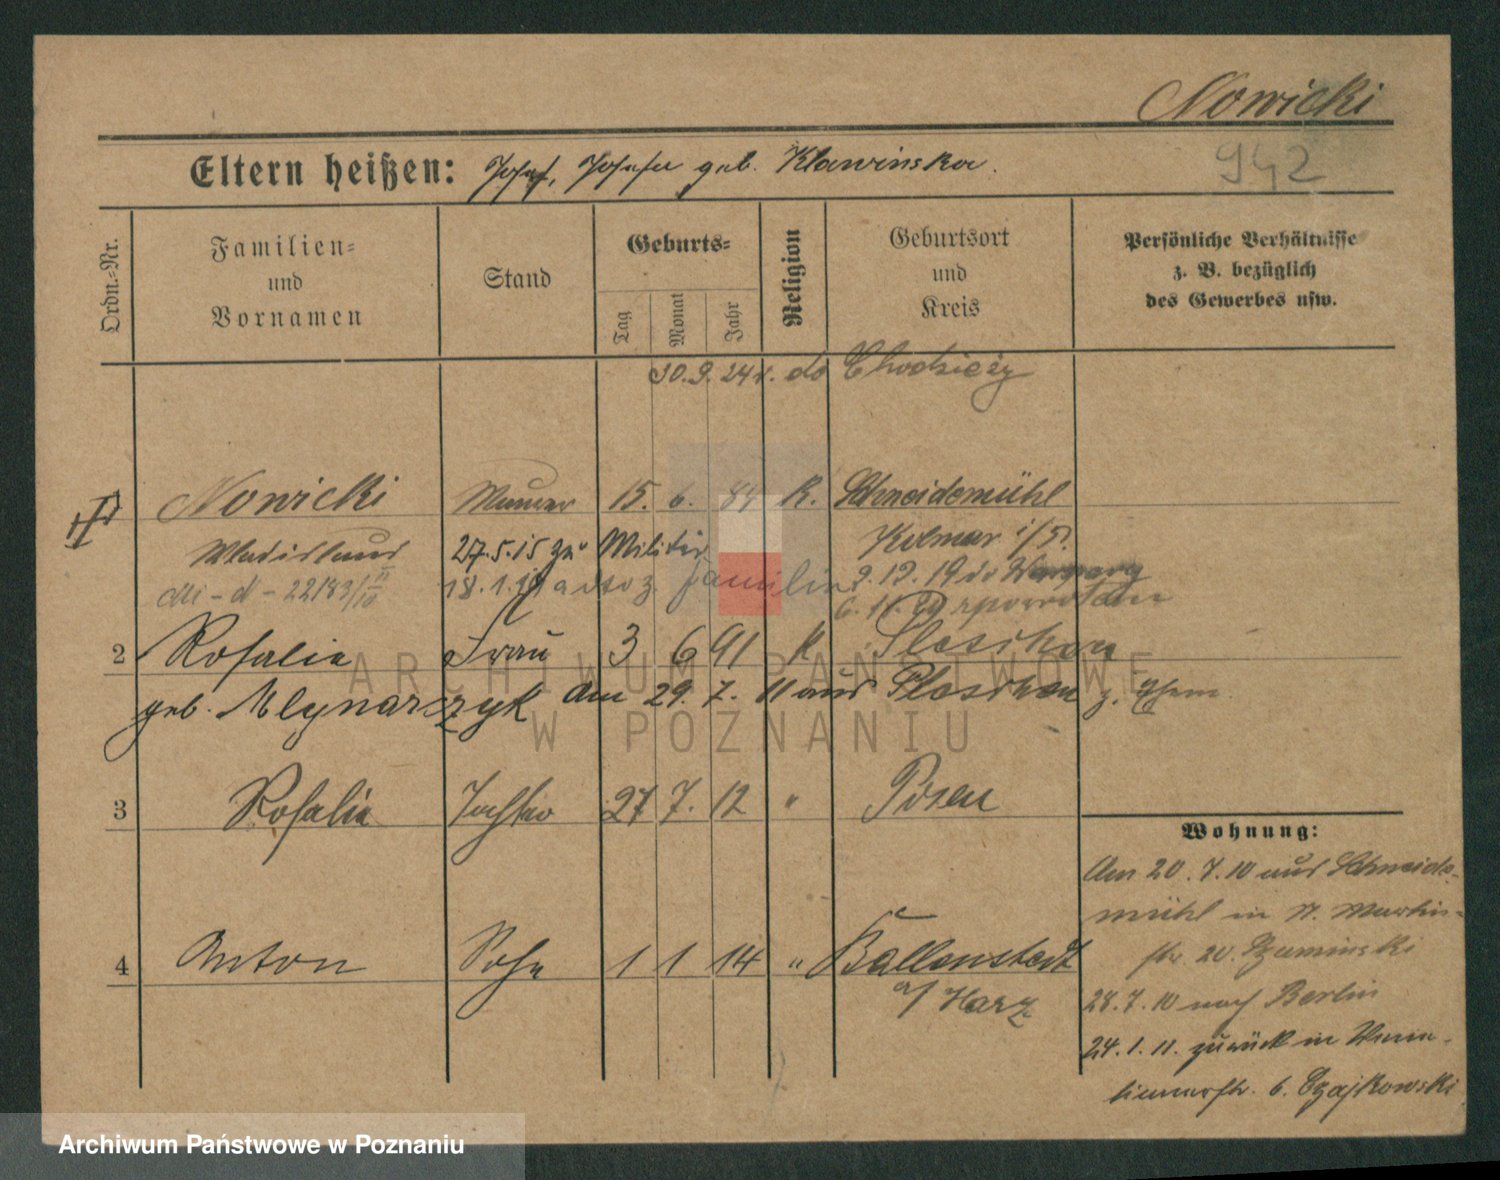 Nowicki
Eltern heißen: Josef, Josefa geb. Klawinska.
942
Ordn.=Nr.
Familien=
und
Vornamen
Stand
Geburts=
Tag
Monat
Jahr
Religion
Geburtsort
und
Kreis
Persönliche Verhältnisse
z. B. bezüglich
des Gewerbes usw.
30.9.24 r. do Chodzieży
Nowicki Maurer 15. 6. 84 K. Schneidemühl
Wladislaus 27.5.15 zu Militär Kolmar i/P.
18.1.19 z. Familie 9.12.19 do
6.11. z powrotem
2 Rosalie Frau 3 6 91 K
geb. Mlynarczyk am 29. 7. 11 aus z. Ehem.
3 Rosalie Tochter 27 7. 12 " Posen
4 Anton Sohn 1 1 14 " Ballenstedt
a/ Harz
Wohnung:
Am 20.7.10 aus Schneide-
mühl in St. Martin-
str 20.
28.7.10 nach Berlin
24.1.11. zurück in
6. Czajkowski
ARCHIWUM PAŃSTWOWE
W POZNANIU
Archiwum Państwowe w Poznaniu